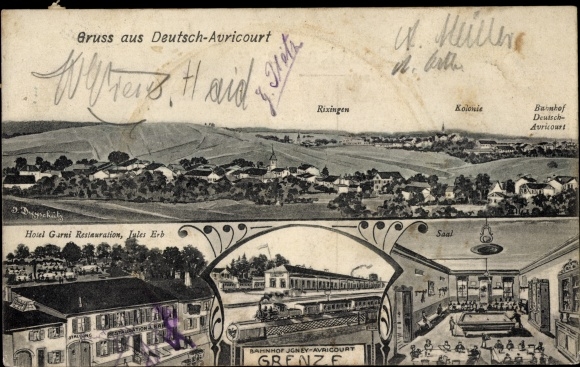 Gruss aus Deutsch-Avricourt
A. Müller
Haid
Rixingen
Kolonie
Bahnhof
Deutsch-
Avricourt
Hotel Garni Restauration, Jules Erb
Saal
BAHNHOF JGNEY-AVRICOURT
GRENZE